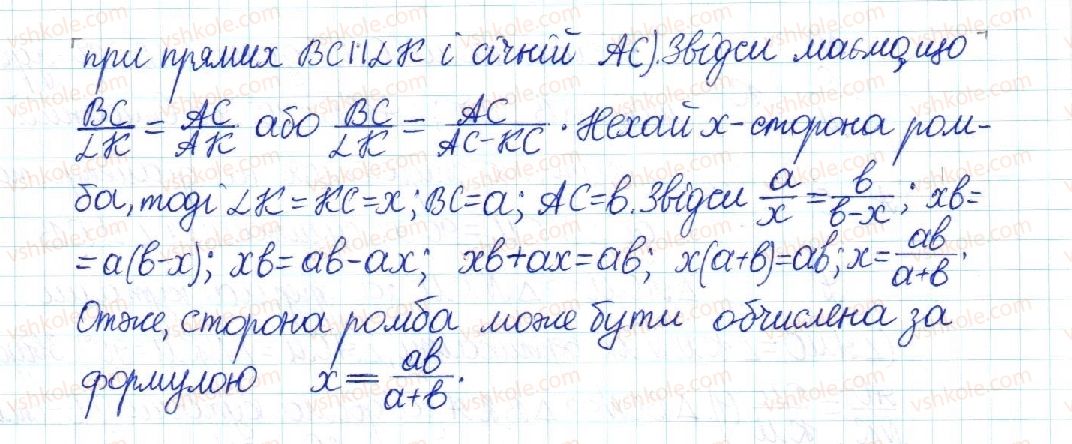 при прямих BC || LK і січній AC). Звідси маємо, що
BC/LK = AC/AK або BC/LK = AC/(AC-KC). Нехай x-сторона ром-
ба, тоді LK = KC = x; BC = a; AC = b. Звідси a/x = b/(b-x); xb =
= a(b-x); xb = ab - ax; xb + ax = ab; x(a+b) = ab; x = ab/(a+b).
Отже, сторона ромба може бути обчислена за
формулою x = ab/(a+b).